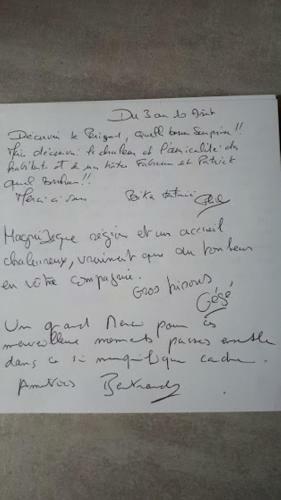 Du 3 au 10 Août
Découvrir le Périgord, quelle bonne surprise !!
Mais découvrir la chaleur et l'amicalité des
habitants et de nos hôtes Fabienne et Patrick
quel bonheur !!
Merci à vous
Magnifique région et un accueil
chaleureux, vraiment que du bonheur
en votre compagnie.
Gros bisous
Gégé
Un grand Merci pour ces
merveilleux moments passés ensemble
dans ce si magnifique cadre.
Amitiés Bertrand